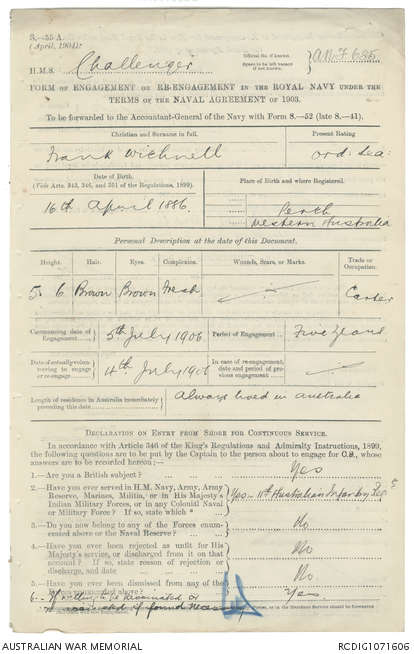 S.—55 A.
(April, 1904).
Official No. if known.
Space to be left vacant if not known.
A.N.F 685
H.M.S. Challenger
FORM OF ENGAGEMENT OR RE-ENGAGEMENT IN THE ROYAL NAVY UNDER THE
TERMS OF THE NAVAL AGREEMENT OF 1903.
To be forwarded to the Accountant-General of the Navy with Form S.—52 (late S.—41).
Christian and Surname in full.
Present Rating
Frank Wichnell
Ord: Sea:
Date of Birth.
(Vide Arts. 343, 346, and 351 of the Regulations, 1899).
Place of Birth and where Registered.
16th April 1886.
Perth
Western Australia
Personal Description at the date of this Document.
Height. Hair. Eyes. Complexion. Wounds, Scars, or Marks. Trade or Occupation.
5. 6 Brown Brown Fresh Carter
Commencing date of Engagement 5th July 1906 Period of Engagement Five Years
Date of actually volunteering to engage or re-engage 4th July 1906 In case of re-engagement, date and period of previous engagement
Length of residence in Australia immediately preceding this date Always lived in Australia
DECLARATION ON ENTRY FROM SHORE FOR CONTINUOUS SERVICE.
In accordance with Article 346 of the King's Regulations and Admiralty Instructions, 1899,
the following questions are to be put by the Captain to the person about to engage for C.S., whose
answers are to be recorded hereon:—
1.—Are you a British subject? Yes
2.—Have you ever served in H.M. Navy, Army, Army
Reserve, Marines, Militia, or in His Majesty's
Indian Military Forces, or in any Colonial Naval
or Military Force? If so, state which
Yes – 11th Australian Infantry Reg
3.—Do you now belong to any of the Forces enumerated above or the Naval Reserve? No
4.—Have you ever been rejected as unfit for His
Majesty's service, or discharged from it on that
account? If so, state reason of rejection or
discharge, and date
No
5.—Have you ever been dismissed from any of the
Forces enumerated above?
No
6.– If willing to be vaccinated or
re-vaccinated if found necessary
Yes.
AUSTRALIAN WAR MEMORIAL
RCDIG1071606